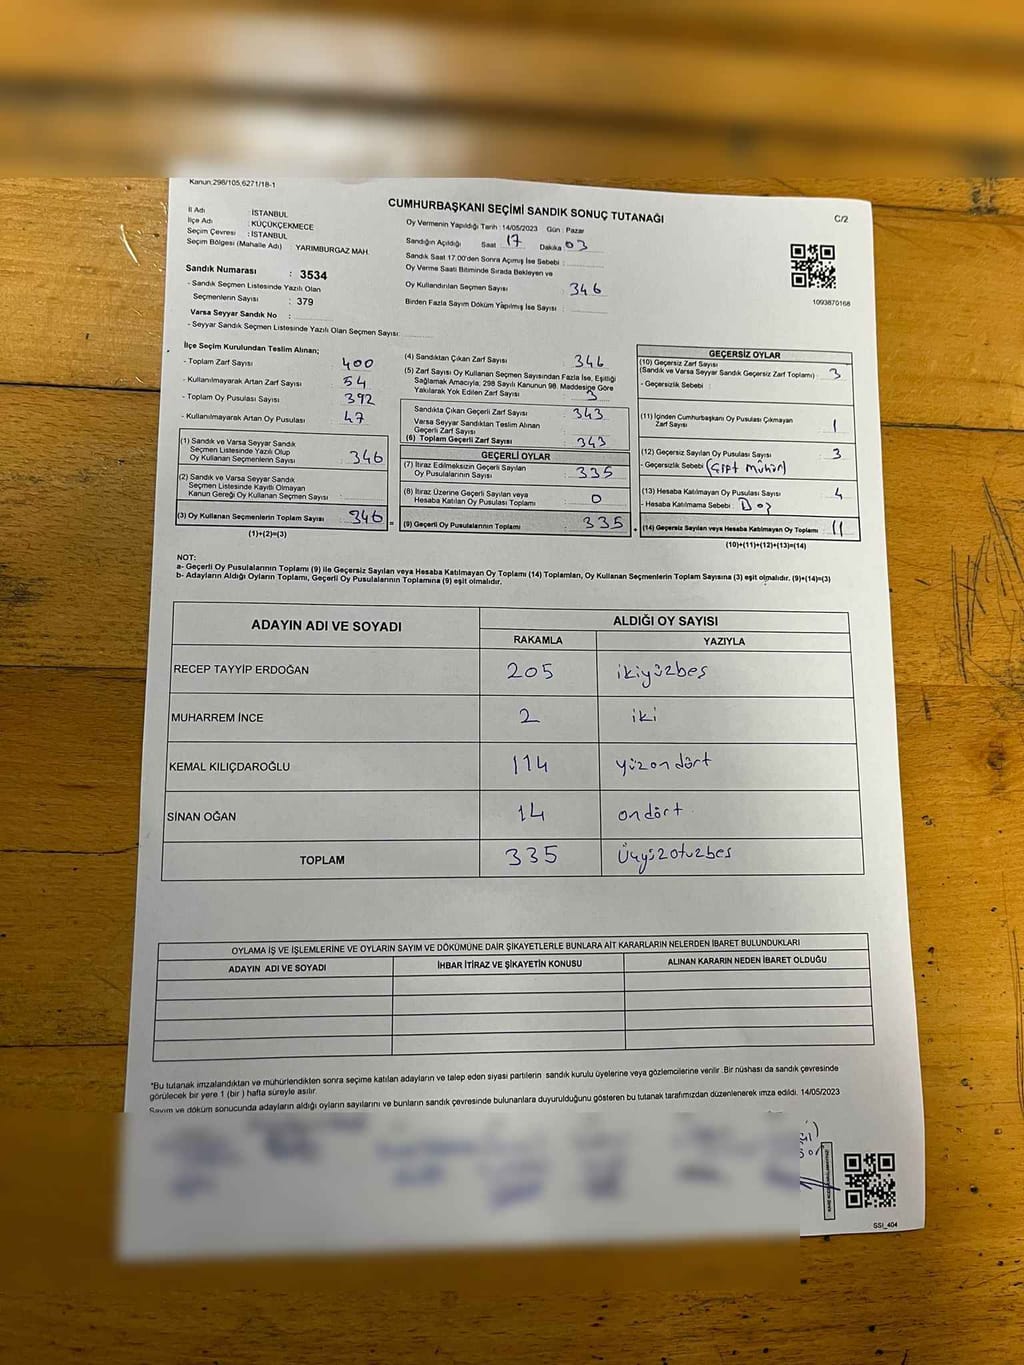 Kanun,298/105,6271/18-1
CUMHURBAŞKANI SEÇİMİ SANDIK SONUÇ TUTANAĞI
C/2
İl Adı : İSTANBUL
İlçe Adı : KÜÇÜKÇEKMECE
Seçim Çevresi : İSTANBUL
Seçim Bölgesi (Mahalle Adı) YARIMBURGAZ MAH.
Sandık Numarası : 3534
- Sandık Seçmen Listesinde Yazılı Olan
Seçmenlerin Sayısı : 379
Varsa Seyyar Sandık No :
- Seyyar Sandık Seçmen Listesinde Yazılı Olan Seçmen Sayısı:
Oy Vermenin Yapıldığı Tarih :14/05/2023 Gün : Pazar
Sandığın Açıldığı Saat 17 Dakika 03
Sandık Saat 17.00'den Sonra Açımış İse Sebebi :
Oy Verme Saati Bitiminde Sırada Bekleyen ve
Oy Kullandırılan Seçmen Sayısı : 346
Birden Fazla Sayım Döküm Yapılmış İse Sayısı :
1093870168
İlçe Seçim Kurulundan Teslim Alınan;
- Toplam Zarf Sayısı : 400
- Kullanılmayarak Artan Zarf Sayısı : 54
- Toplam Oy Pusulası Sayısı : 392
- Kullanılmayarak Artan Oy Pusulası : 47
(1) Sandık ve Varsa Seyyar Sandık
Seçmen Listesinde Yazılı Olup
Oy Kullanan Seçmenlerin Sayısı : 346
(2) Sandık ve Varsa Seyyar Sandık
Seçmen Listesinde Kayıtlı Olmayan
Kanun Gereği Oy Kullanan Seçmen Sayısı :
(3) Oy Kullanan Seçmenlerin Toplam Sayısı : 346 =
(1)+(2)=(3)
(4) Sandıktan Çıkan Zarf Sayısı : 346
(5) Zarf Sayısı Oy Kullanan Seçmen Sayısından Fazla İse, Eşitliği
Sağlamak Amacıyla, 298 Sayılı Kanunun 98. Maddesine Göre
Yakılarak Yok Edilen Zarf Sayısı : 3
Sandıkta Çıkan Geçerli Zarf Sayısı : 343
Varsa Seyyar Sandıktan Teslim Alınan
Geçerli Zarf Sayısı :
(6) Toplam Geçerli Zarf Sayısı : 343
GEÇERLİ OYLAR
(7) İtiraz Edilmeksizin Geçerli Sayılan
Oy Pusulalarının Sayısı : 335
(8) İtiraz Üzerine Geçerli Sayılan veya
Hesaba Katılan Oy Pusulası Toplamı : 0
(9) Geçerli Oy Pusulalarının Toplamı : 335 +
GEÇERSİZ OYLAR
(10) Geçersiz Zarf Sayısı
(Sandık ve Varsa Seyyar Sandık Geçersiz Zarf Toplamı) : 3
- Geçersizlik Sebebi :
(11) İçinden Cumhurbaşkanı Oy Pusulası Çıkmayan
Zarf Sayısı : 1
(12) Geçersiz Sayılan Oy Pusulası Sayısı : 3
- Geçersizlik Sebebi (Çift Mühür)
(13) Hesaba Katılmayan Oy Pusulası Sayısı : 4
- Hesaba Katılmama Sebebi :
(14) Geçersiz Sayılan veya Hesaba Katılmayan Oy Toplamı : 11
(10)+(11)+(12)+(13)=(14)
NOT:
a- Geçerli Oy Pusulalarının Toplamı (9) ile Geçersiz Sayılan veya Hesaba Katılmayan Oy Toplamı (14) Toplamları, Oy Kullanan Seçmenlerin Toplam Sayısına (3) eşit olmalıdır. (9)+(14)=(3)
b- Adayların Aldığı Oyların Toplamı, Geçerli Oy Pusulalarının Toplamına (9) eşit olmalıdır.
ADAYIN ADI VE SOYADI
ALDIĞI OY SAYISI
RAKAMLA YAZIYLA
RECEP TAYYİP ERDOĞAN 205 ikiyüzbeş
MUHARREM İNCE 2 iki
KEMAL KILIÇDAROĞLU 114 yüzondört
SİNAN OĞAN 14 ondört
TOPLAM 335 Üçyüzotuzbeş
OYLAMA İŞ VE İŞLEMLERİNE VE OYLARIN SAYIM VE DÖKÜMÜNE DAİR ŞİKAYETLERLE BUNLARA AİT KARARLARIN NELERDEN İBARET BULUNDUKLARI
ADAYIN ADI VE SOYADI İHBAR İTİRAZ VE ŞİKAYETİN KONUSU ALINAN KARARIN NEDEN İBARET OLDUĞU
*Bu tutanak imzalandıktan ve mühürlendikten sonra seçime katılan adayların ve talep eden siyasi partilerin sandık kurulu üyelerine veya gözlemcilerine verilir .Bir nüshası da sandık çevresinde
görülecek bir yere 1 (bir ) hafta süreyle asılır.
Sayım ve döküm sonucunda adayların aldığı oyların sayılarını ve bunların sandık çevresinde bulunanlara duyurulduğunu gösteren bu tutanak tarafımızdan düzenlenerek imza edildi. 14/05/2023
SSI_404